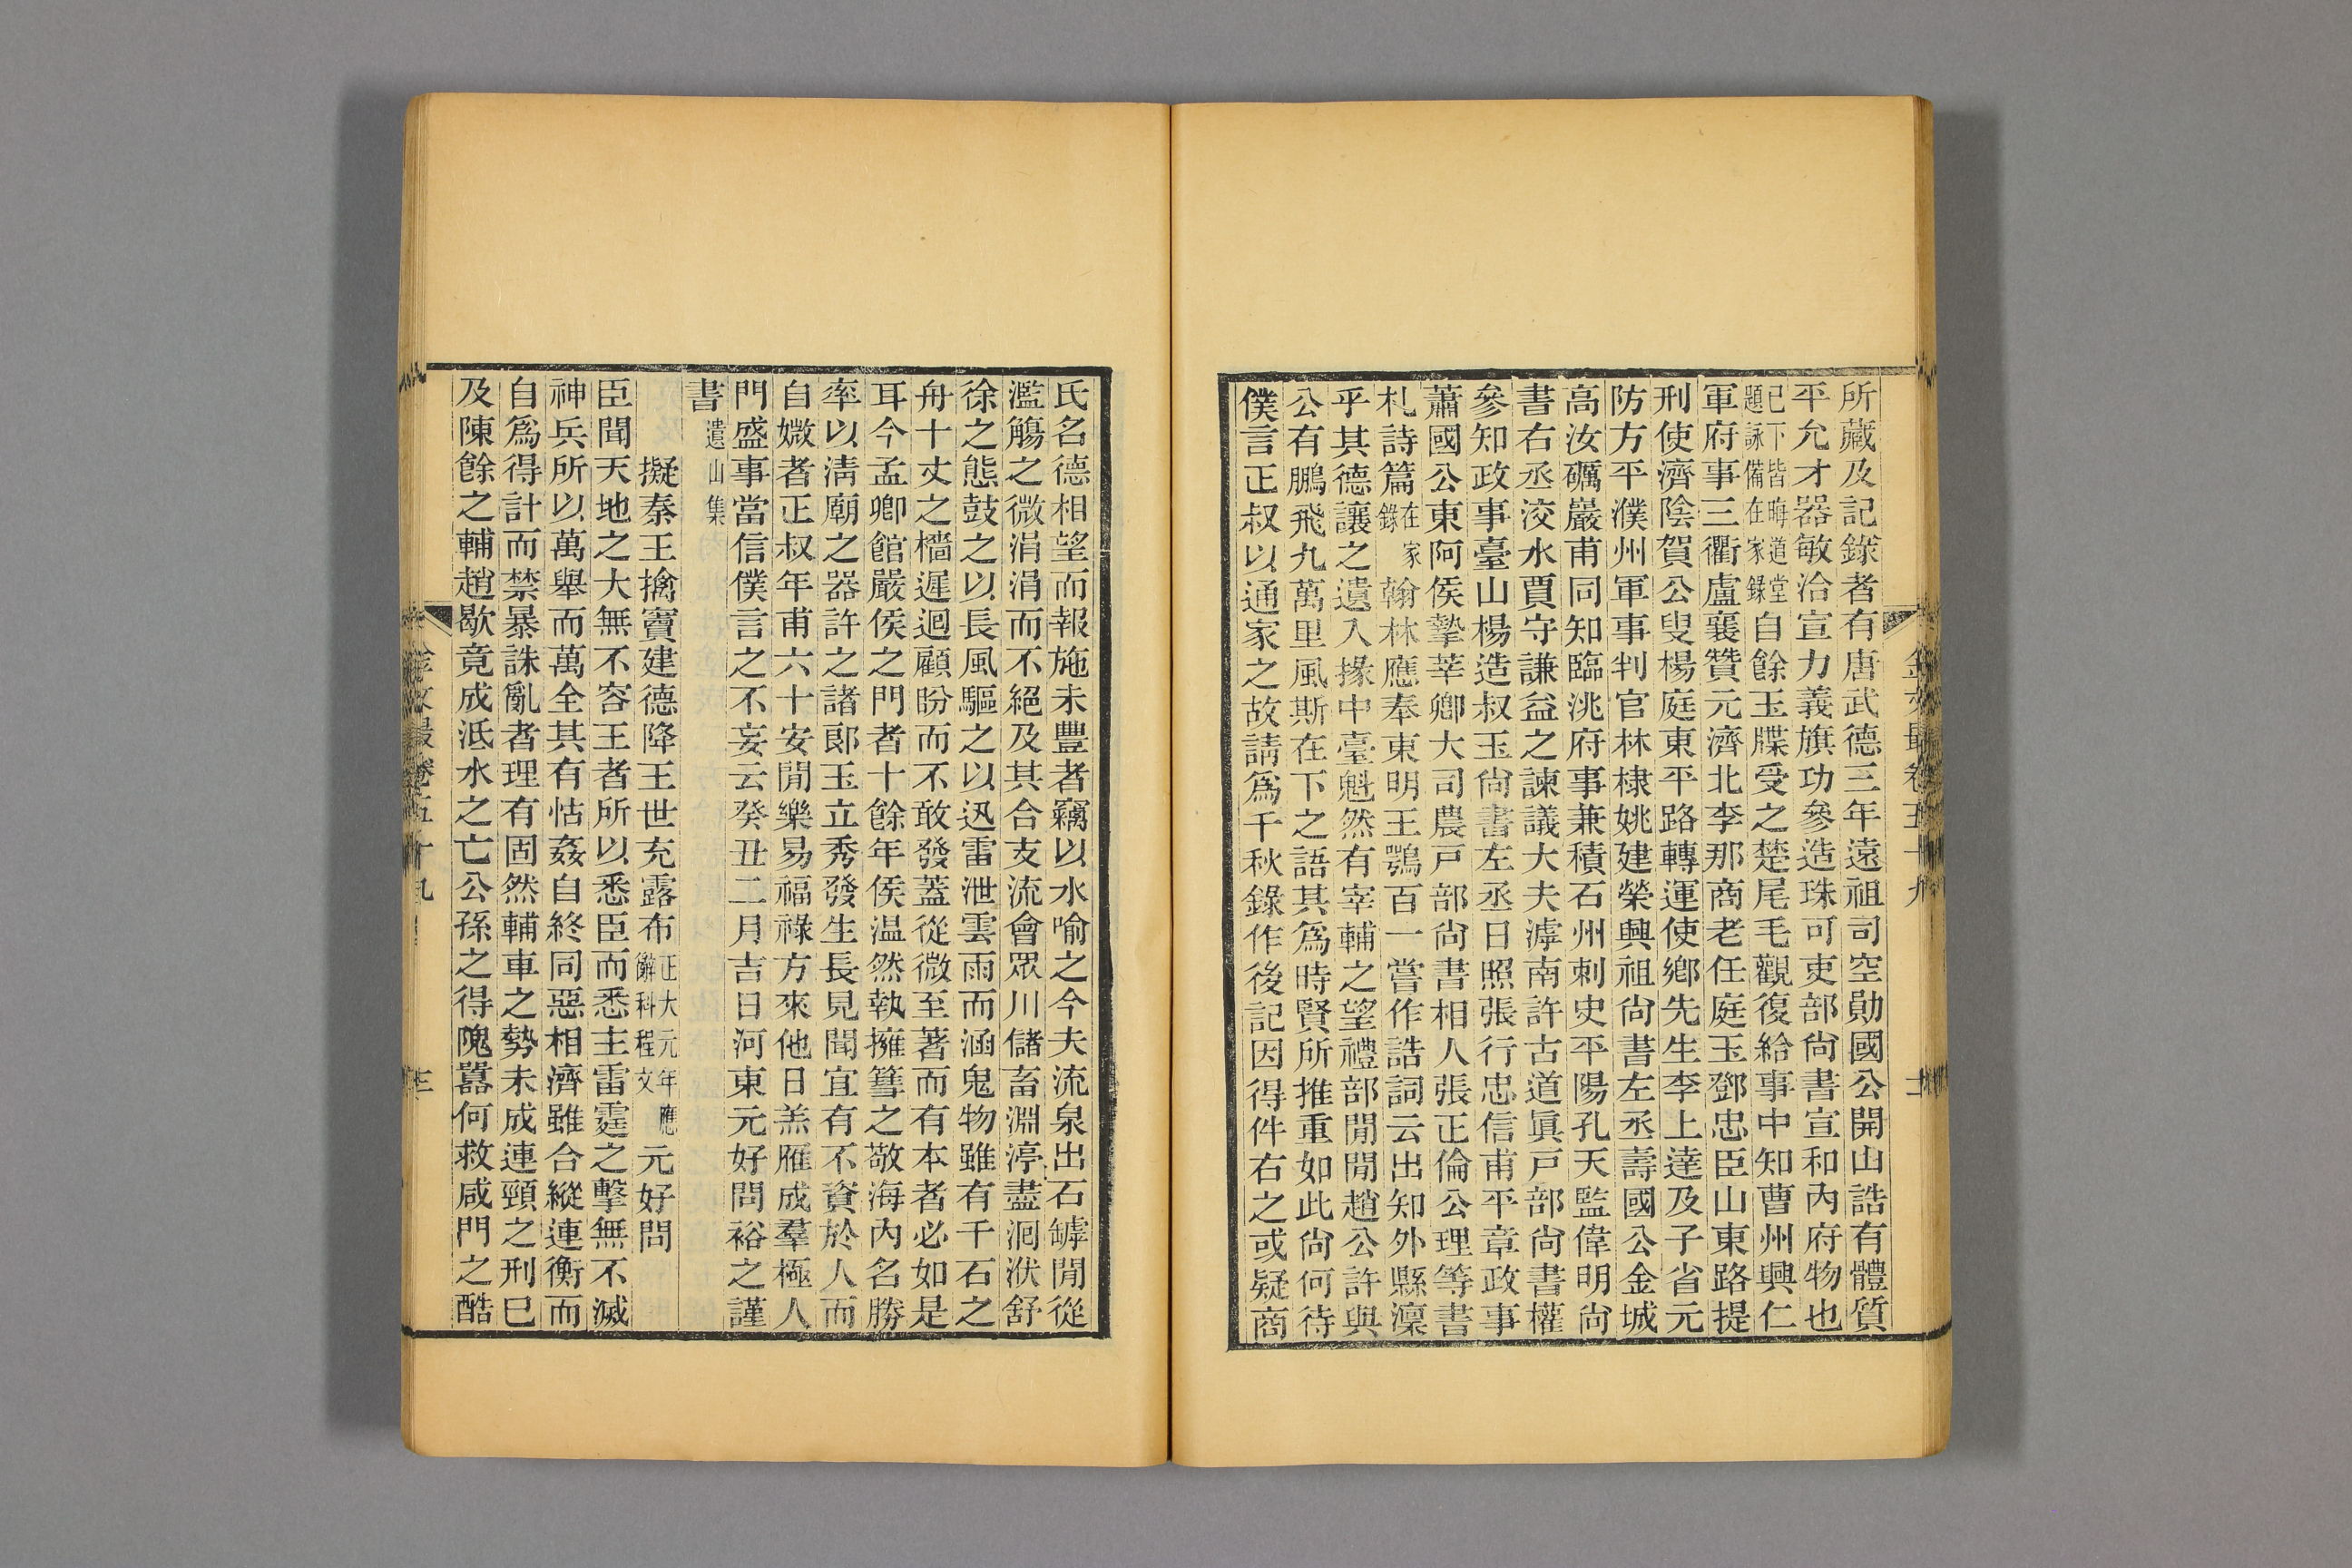 所藏及記錄者有唐武德三年遠祖司空勛國公開山誥有體質
平允才器敏洽宣力義旗功參造珠可吏部尙書宣和內府物也
已下皆晦道堂
題詠備在家錄
自餘玉牒受之楚尾毛觀復給事中知曹州興仁
軍府事三衢盧襄贊元濟北李那商老任庭玉鄧忠臣山東路提
刑使濟陰賀公叟楊庭東平路轉運使鄉先生李上達及子省元
防方平濮州軍事判官林棣姚建榮興祖尙書左丞壽國公金城
高汝礪巖甫同知臨洮府事兼積石州刺史平陽孔天監偉明尙
書右丞洨水賈守謙益之諫議大夫滹南許古道眞戸部尙書權
參知政事臺山楊造叔玉尙書左丞日照張行忠信甫平章政事
蕭國公東阿侯摯莘卿大司農戸部尙書相人張正倫公理等書
札詩篇
在家
錄
翰林應奉東明王鶚百一嘗作誥詞云出知外縣凜
乎其德讓之遺入掾中臺魁然有宰輔之望禮部閒閒趙公許與
公有鵬飛九萬里風斯在下之語其爲時賢所推重如此尙何待
僕言正叔以通家之故請爲千秋錄作後記因得件右之或疑商
氏名德相望而報施未豐者竊以水喻之今夫流泉出石罅閒從
濫觴之微涓涓而不絕及其合支流會眾川儲畜淵渟盡洄洑舒
徐之態鼓之以長風驅之以迅雷泄雲雨而涵鬼物雖有千石之
舟十丈之檣遲迴顧盼而不敢發蓋從微至著而有本者必如是
耳今孟卿館嚴侯之門者十餘年侯温然執擁篲之敬海內名勝
率以淸廟之器許之諸郎玉立秀發生長見聞宜有不資於人而
自媺者正叔年甫六十安閒樂易福祿方來他日羔雁成羣極人
門盛事當信僕言之不妄云癸丑二月吉日河東元好問裕之謹
書
遺山集
擬秦王擒竇建德降王世充露布
正大元年應
辭科程文
元好問
臣聞天地之大無不容王者所以悉臣而悉主雷霆之擊無不滅
神兵所以萬舉而萬全其有怙姦自終同惡相濟雖合縱連衡而
自爲得計而禁暴誅亂者理有固然輔車之勢未成連頸之刑已
及陳餘之輔趙歇竟成泜水之亡公孫之得隗囂何救咸門之酷
金文最卷五十九